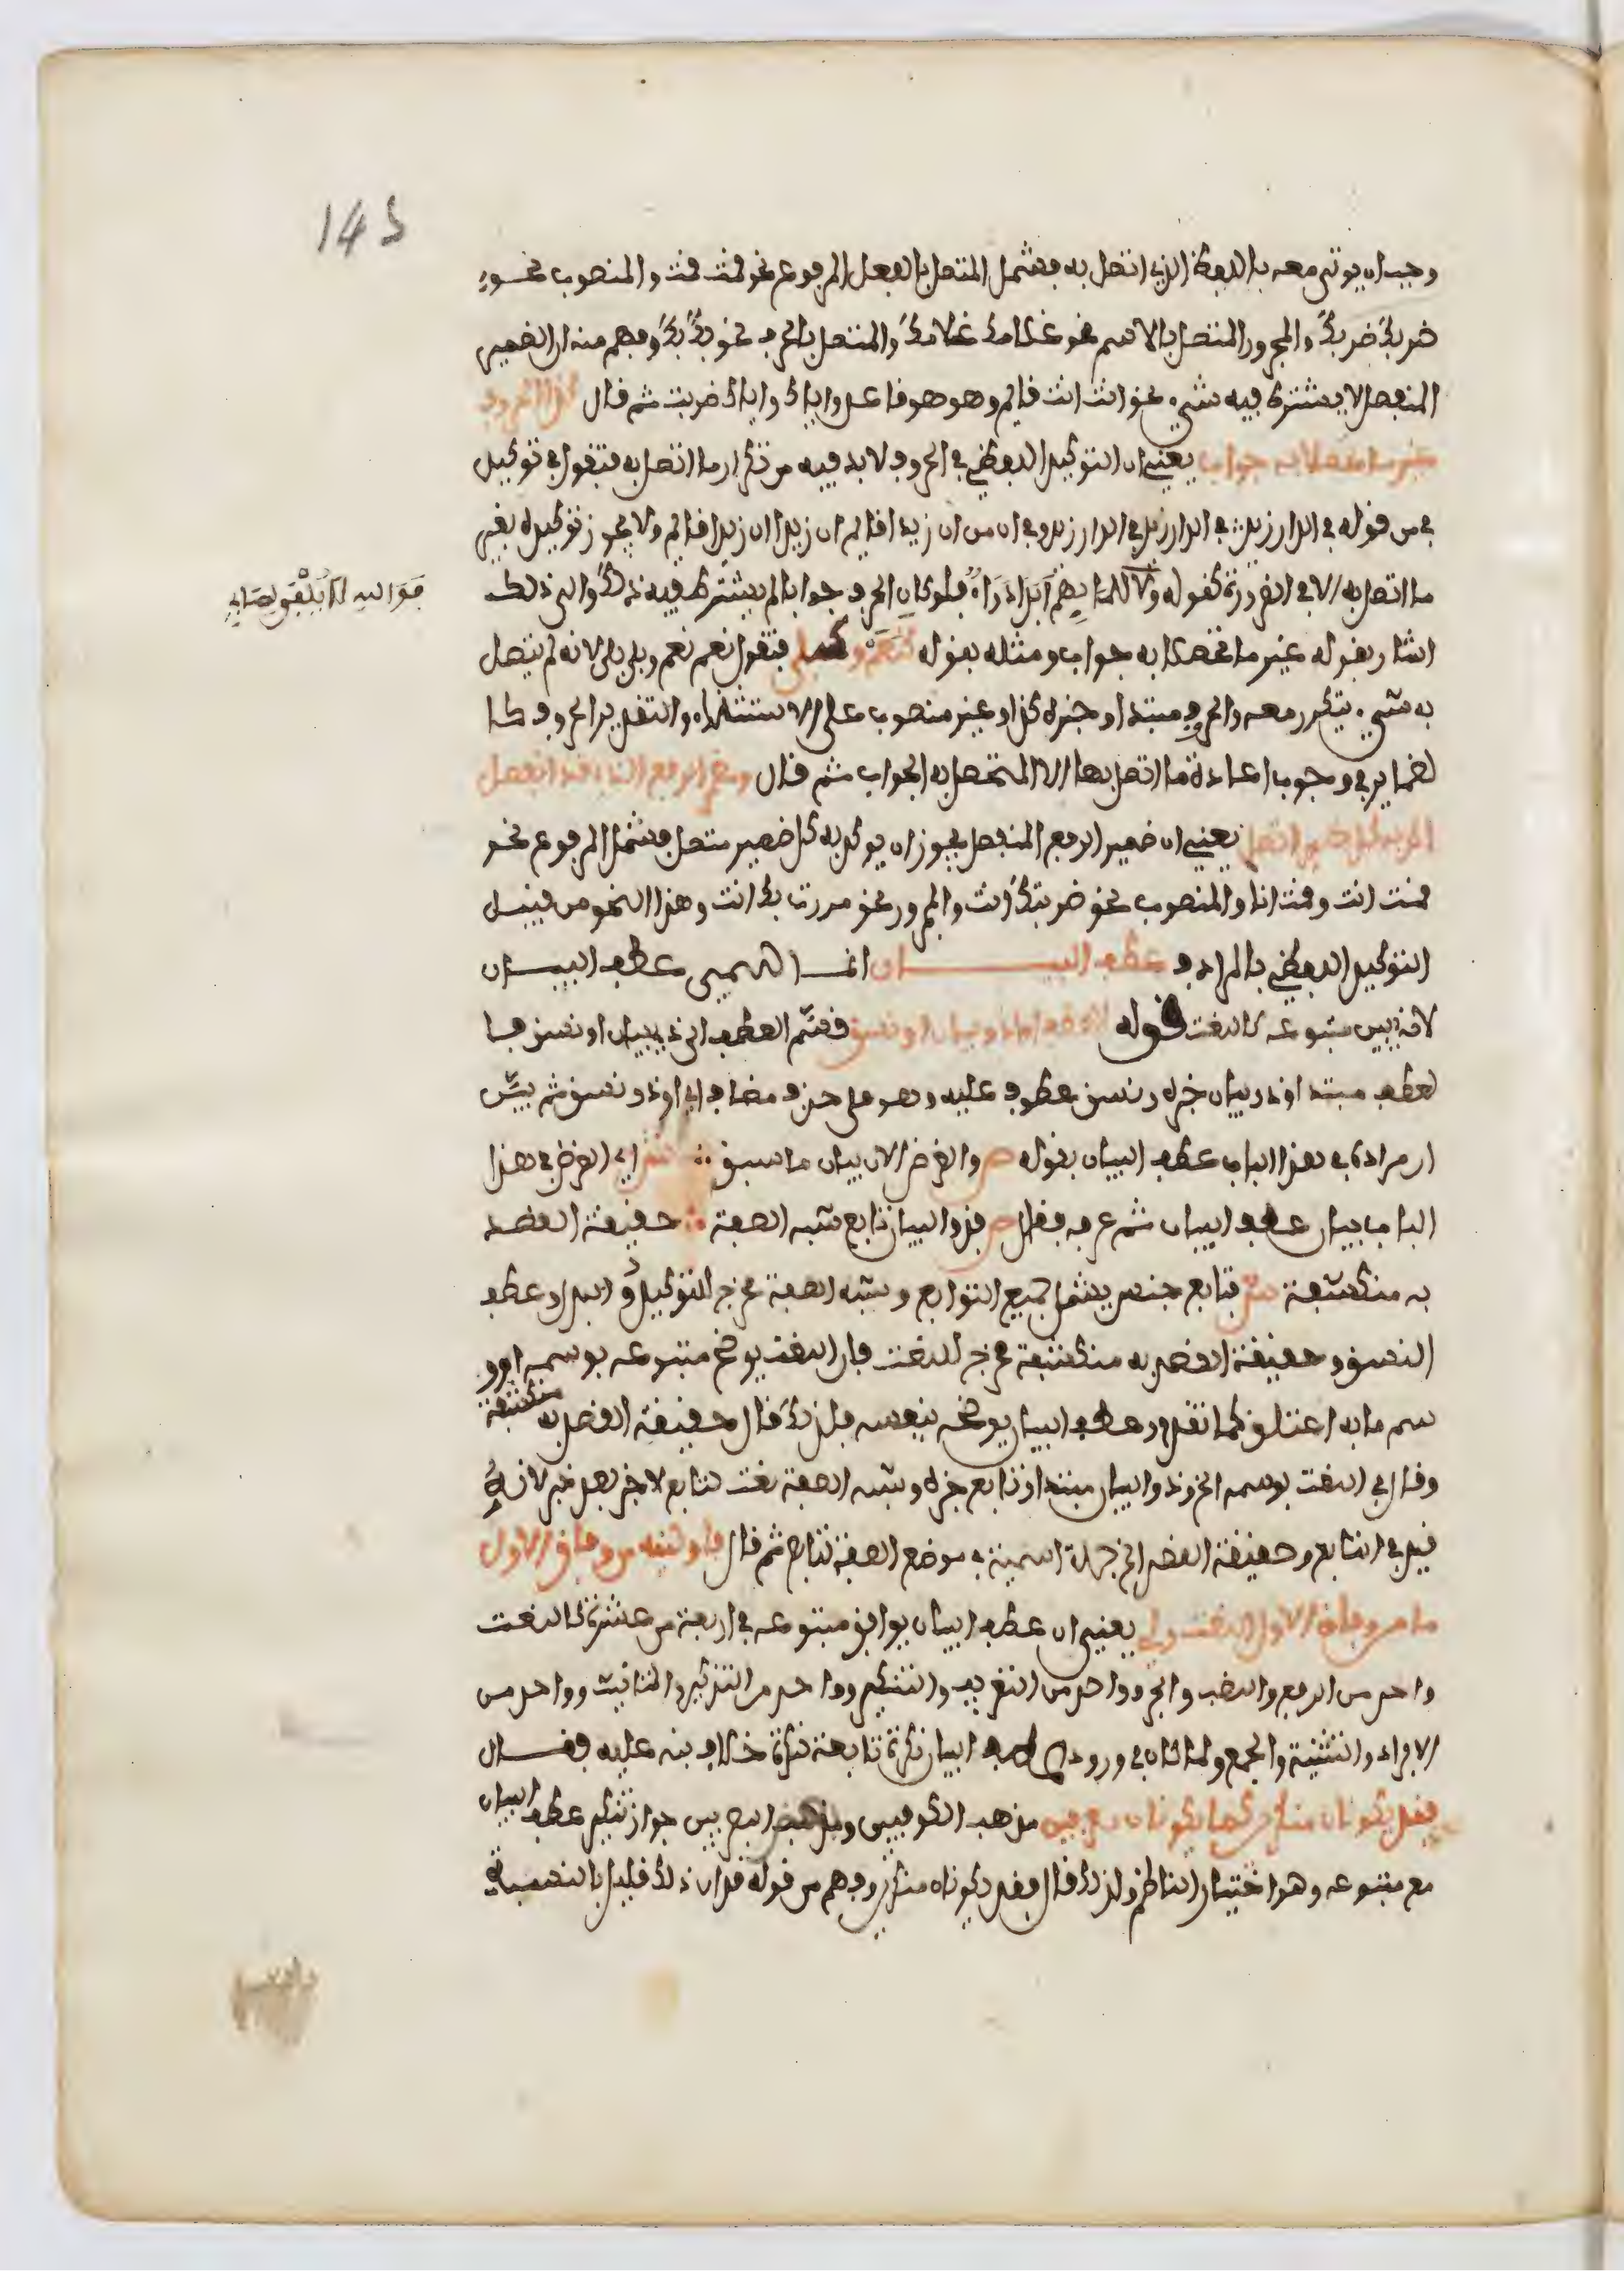 145
وجب ان يوتى معه باللفظ الذي اتصل به فشمل المتصل بالفعل المرفوع نحو قمت قمت والمنصوب نحو
ضربك ضربك والمجرور المتصل بالاسم نحو غلامك غلامك والمتصل بالحرف نحو بك بك وفهم منه ان الضمير
المنفصل لا يشترط فيه شيء نحو انت انت قايم وهو هو فاعل واياك واياك ضربت ثم قال كذا الحروف
غير ما تحصلا به جواب يعني ان التوكيد اللفظي في الحروف لا بد فيه من تكرار ما اتصل به فتقول في توكيد
في من قوله في الدار زيد في الدار زيد في الدار زيد وفي ان من ان زيدا قايم ان زيدا ان زيدا قايم ولا يجوز توكيده بغير
ما اتصل به الا في الضرورة كقوله ولا للما بهم ابدا دواء فلو كان الحرف جوابا لم يشترط فيه ذلك والى ذلك
فو الله لا يلقى لما بي
اشار بقوله غير ما تحصلا به جواب ومثله بقوله كنعم وكبلى فتقول نعم نعم وبلى بلى لانه لم يتصل
به شيء يتكرر معه والحروف مبتدا وخبره كذا وغير منصوب على الاستثناء والتقدير الحروف كا
لضماير في وجوب اعادة ما اتصل بها الا المتحصل به الجواب ثم قال ومضمر الرفع الذي قد انفصل
اكد به كل ضمير اتصل يعني ان ضمير الرفع المنفصل يجوز ان يوكد به كل ضمير متصل فشمل المرفوع نحو
قمت انت وقمت انا والمنصوب نحو ضربتك انت والمجرور نحو مررت بك انت وهذا النحو من قبيل
التوكيد اللفظي بالمرادف عطف البيان انما سمي عطف البيان
لانه يبين متبوعه كالنعت قوله العطف اما ذو بيان او نسق فقسم العطف الى ذي بيان او نسق فا
لعطف مبتدا وذو بيان خبره ونسق معطوف عليه وهو على حذف مضاف اي او ذو نسق ثم بيّن
ان مراده في هذا الباب عطف البيان بقوله ص والغرض الان بيان ما سبق ش اي الغرض في هذا
الباب بيان عطف البيان ثم عرفه فقال ص فذو البيان تابع شبه الصفة حقيقة القصد
به منكشفة ش فتابع جنس يشمل جميع التوابع وشبه الصفة مخرج للتوكيد والبدل وعطف
النسق وحقيقة القصد به منكشفة مخرج للنعت فان النعت يوضح متبوعه بوسمه او و
سم ما به اعتلق كما تقدم وعطف البيان يوضحه بنفسه فلذلك قال حقيقة القصد به منكشفة
وقال في النعت بوسمه الخ وذو البيان مبتدا وتابع خبره وشبه الصفة نعت لتابع لا خبر بعد خبر لانه
قيد في التابع وحقيقة القصد الخ جملة اسمية في موضع الصفة لتابع ثم قال فاولينه من وفاق الاول
ما من وفاق الاول النعت ولي يعني ان عطف البيان يوافق متبوعه في اربعة من عشرة كالنعت
واحد من الرفع والنصب والجر وواحد من التعريف والتنكير وواحد من التذكير والتانيث وواحد من
الافراد والتثنية والجمع ولما كان في ورود عطف البيان نكرة تابعة نكرة خلاف نبه عليه فقال
فقد يكونان منكرين كما يكونان معرفين مذهب الكوفيين وبعض البصريين جواز تنكير عطف البيان
مع متبوعه وهو اختيار الناظم ولذلك قال فقد يكونان منكرين وفهم من قوله قد ان ذلك قليل بالنسبة